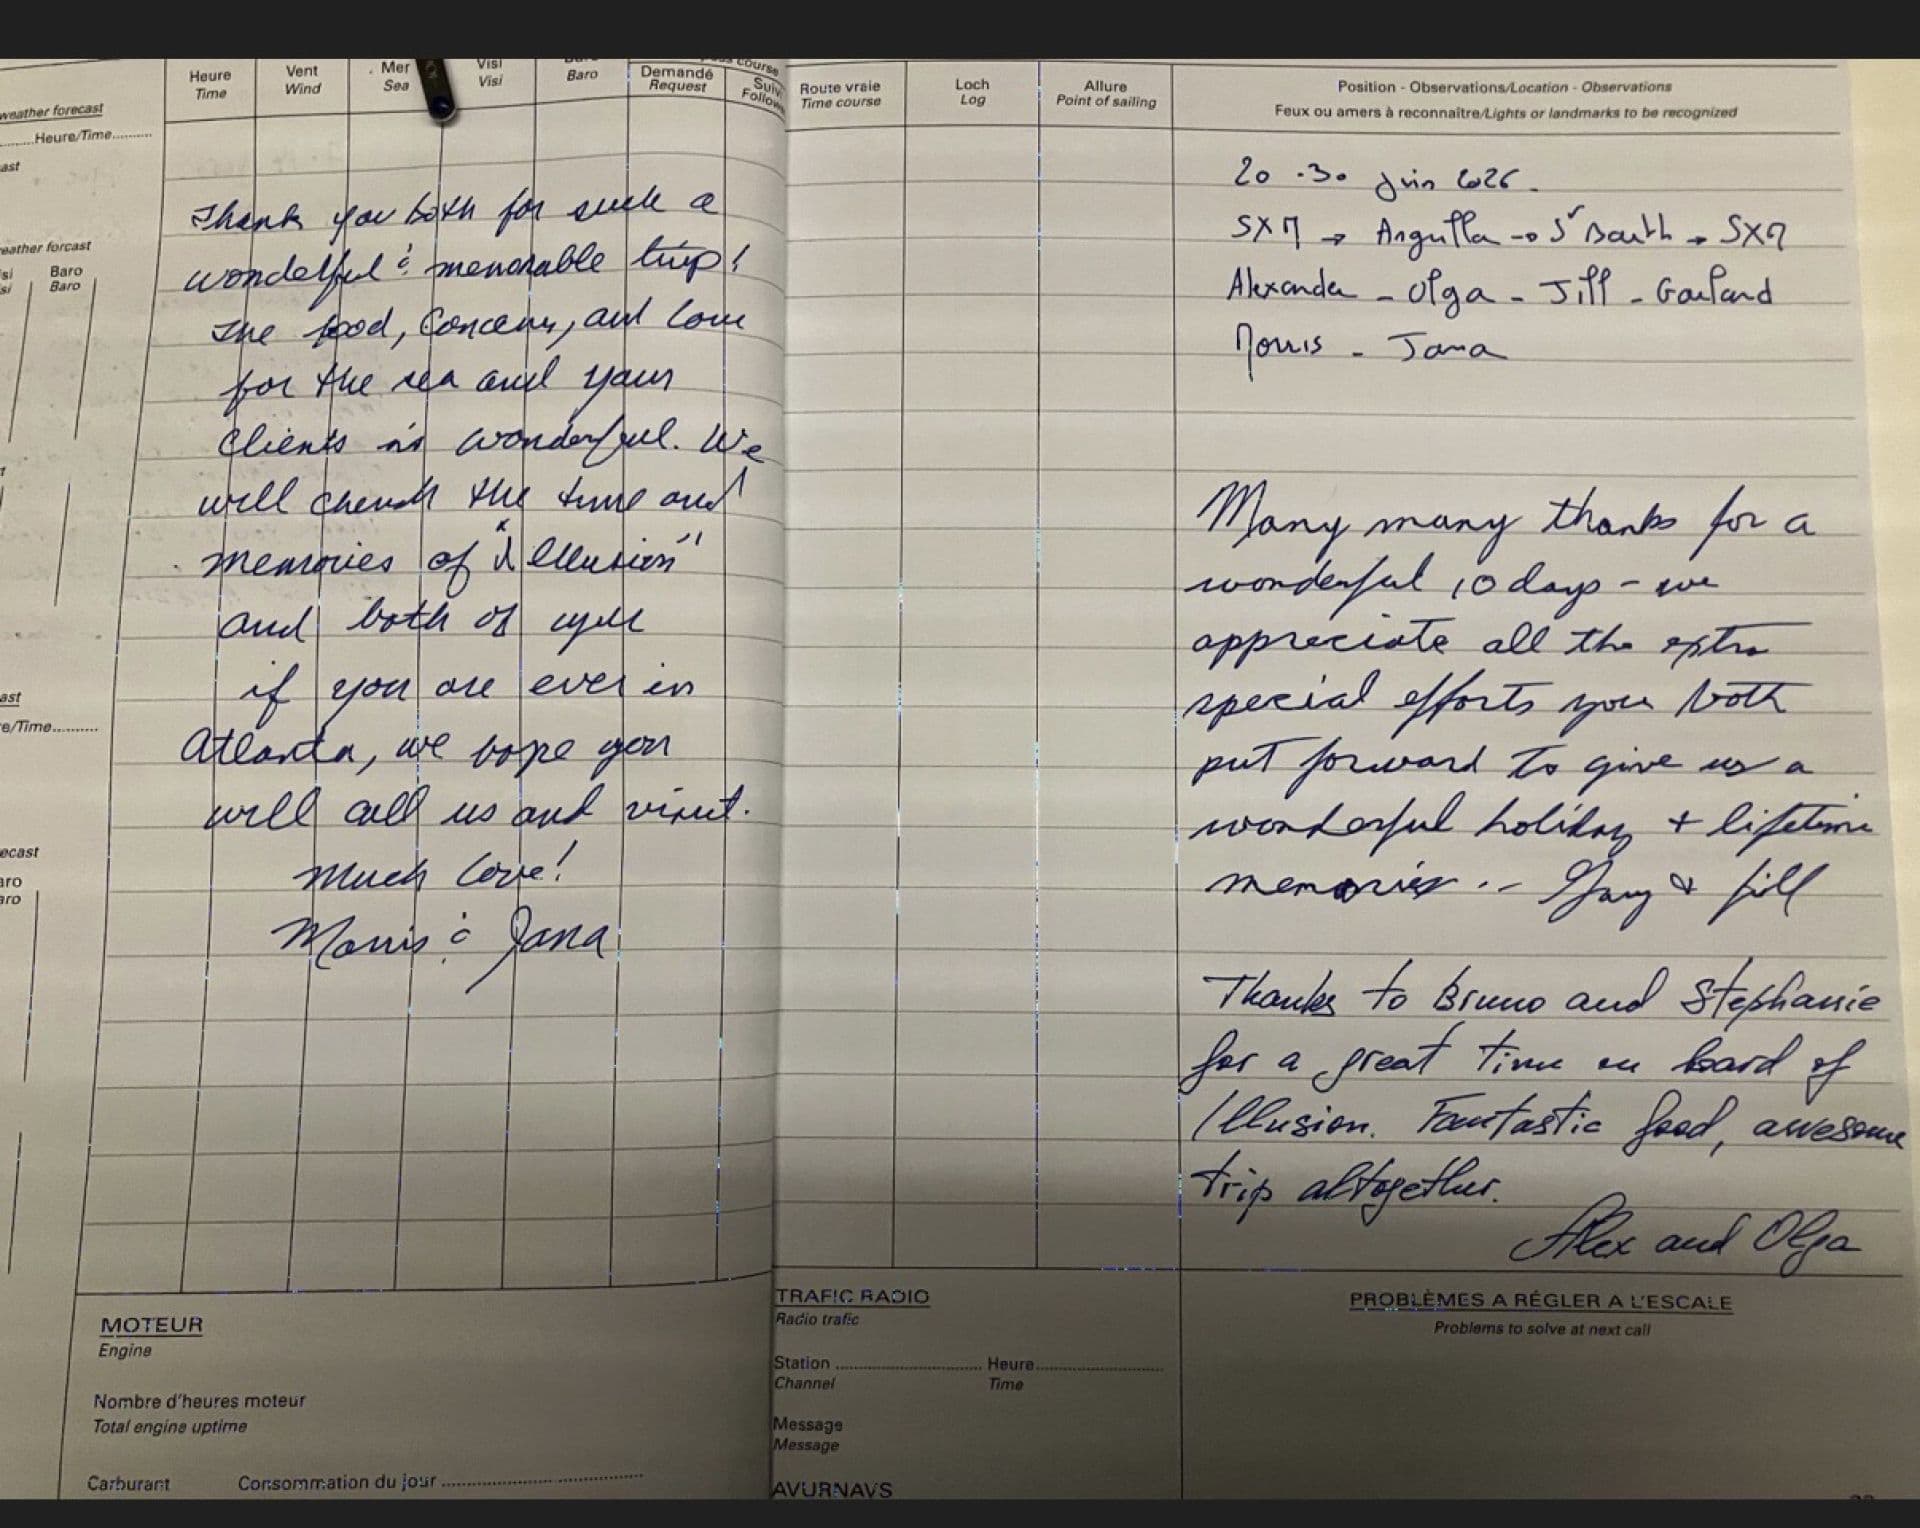 weather forecast
Heure/Time
ast
weather forcast
si Baro
si Baro
ast
e/Time
ecast
aro
aro
Heure
Time
Vent
Wind
Mer
Sea
Visi
Visi
Baro
Demandé
Request
course
Suivi
Follow
Thank you both for such a
wonderful & memorable trip!
The food, Concern, and Love
for the sea and your
Clients is wonderful. We
will cherish the time and
memories of "Illusion"
and both of you
if you are ever in
Atlanta, we hope you
will call us and visit.
Much Love!
Morris & Jana
MOTEUR
Engine
Nombre d'heures moteur
Total engine uptime
Carburant Consommation du jour
Route vraie
Time course
Loch
Log
Allure
Point of sailing
Position - Observations/Location - Observations
Feux ou amers à reconnaître/Lights or landmarks to be recognized
20 . 30 Juin 2026.
SXM → Anguilla → St Barth → SXM
Alexander - Olga - Jill - Garland
Morris - Jana
Many many thanks for a
wonderful 10 days - we
appreciate all the extra
special efforts you both
put forward to give us a
wonderful holiday + lifetime
memories -- Gary & Jill
Thanks to Bruno and Stephanie
for a great time on board of
Illusion. Fantastic food, awesome
trip altogether.
Alex and Olga
TRAFIC RADIO
Radio trafic
Station Heure
Channel Time
Message
Message
AVURNAVS
PROBLÈMES A RÉGLER A L'ESCALE
Problems to solve at next call